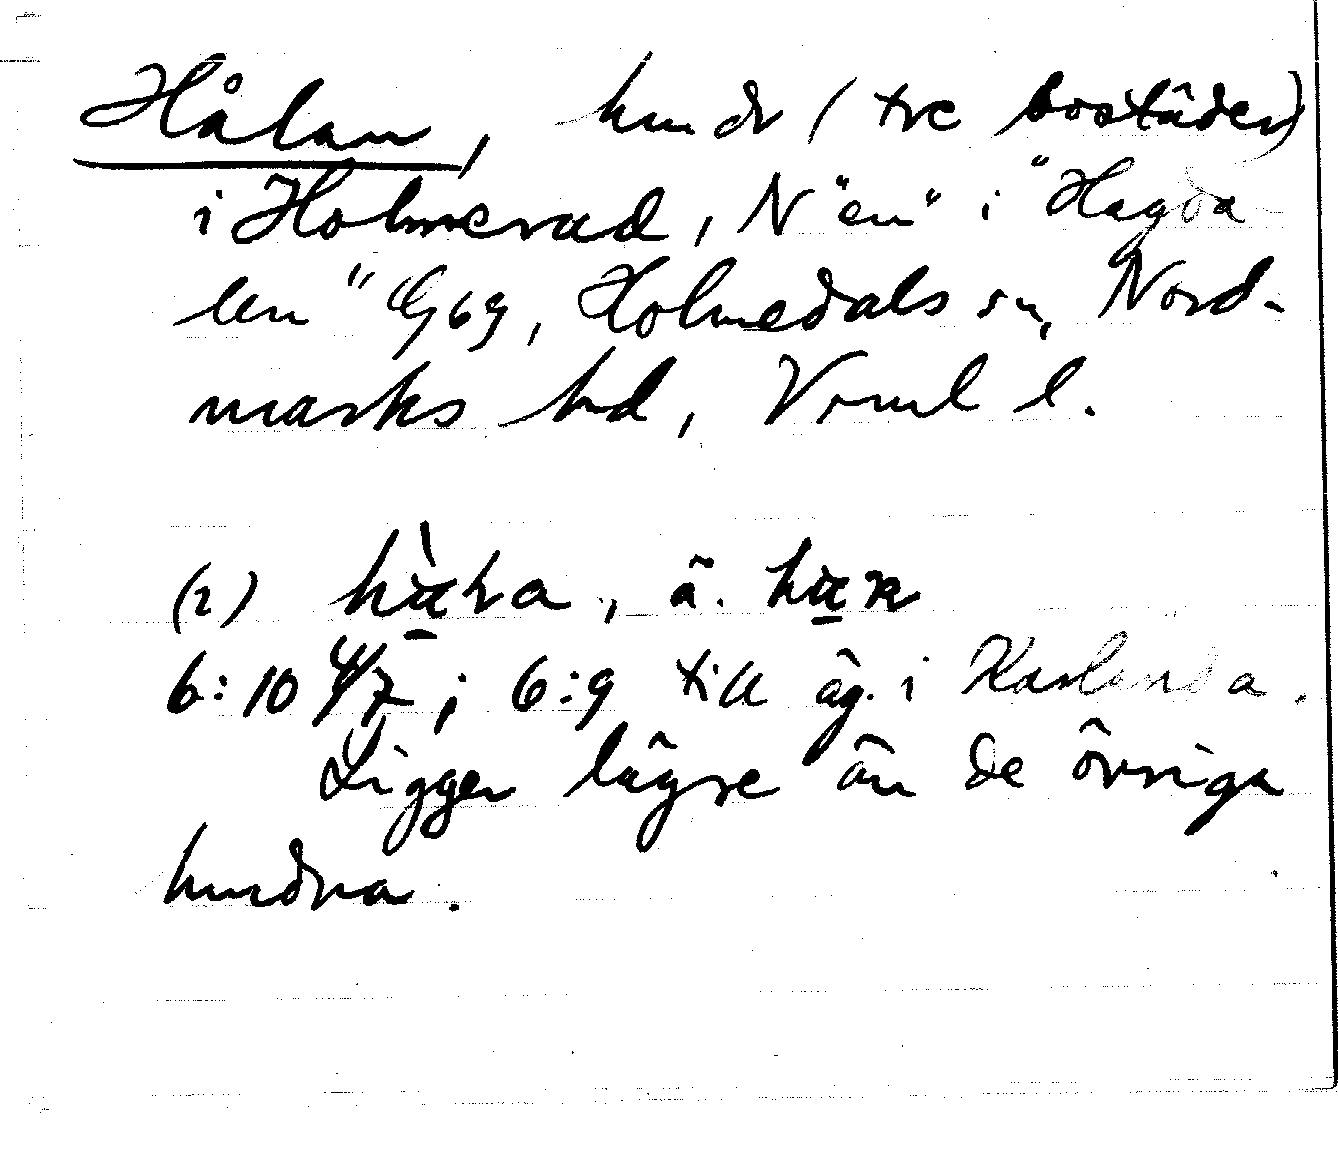 Hålan, hmdr (tre bostäder)
i Holmerud, N "en" i "Hagda
len" G69, Holmedals sn, Nord-
marks hd, Vrml l.
(2) , ä.
6:10 4/7; 6:9 till äg. i Karlanda.
Ligger lägre än de övriga
hmdna.